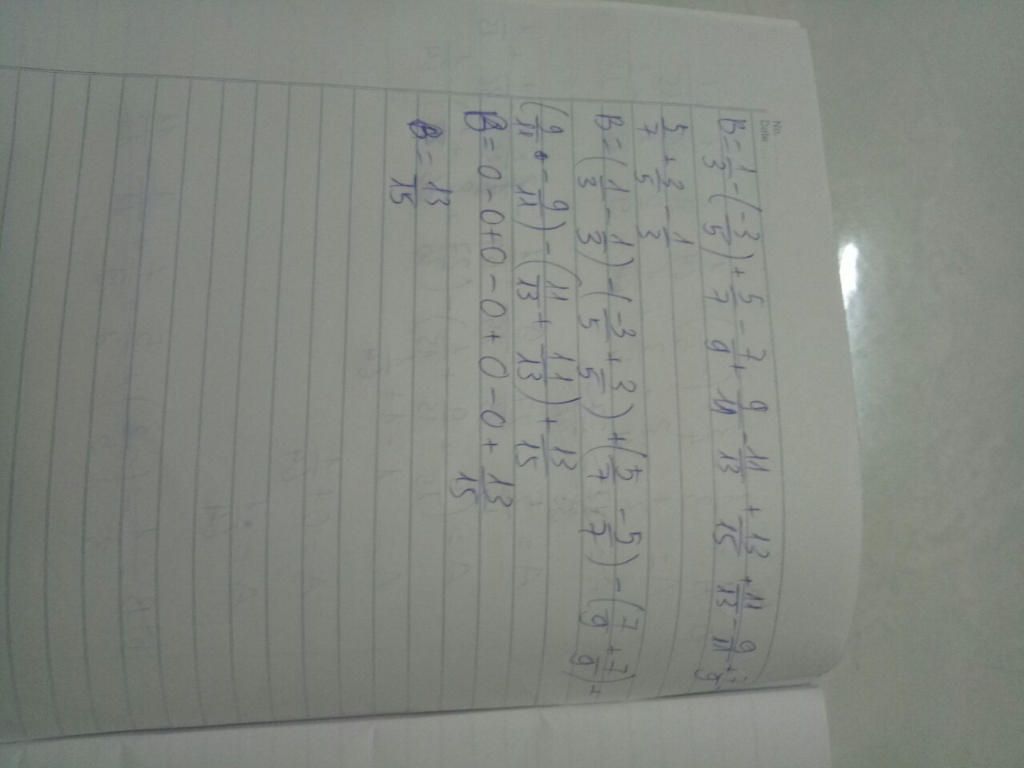 No.
Date
B = 1/3 - (-3/5) + 5/7 - 7/9 + 9/11 - 11/13 + 13/15 + 11/13 - 9/11 + 7/9 -
5/7 + 3/5 - 1/3
B = (1/3 - 1/3) - (-3/5 + 3/5) + (5/7 - 5/7) - (7/9 + 7/9) +
(9/11 - 9/11) - (11/13 + 11/13) + 13/15
B = 0 - 0 + 0 - 0 + 0 - 0 + 13/15
B = 13/15